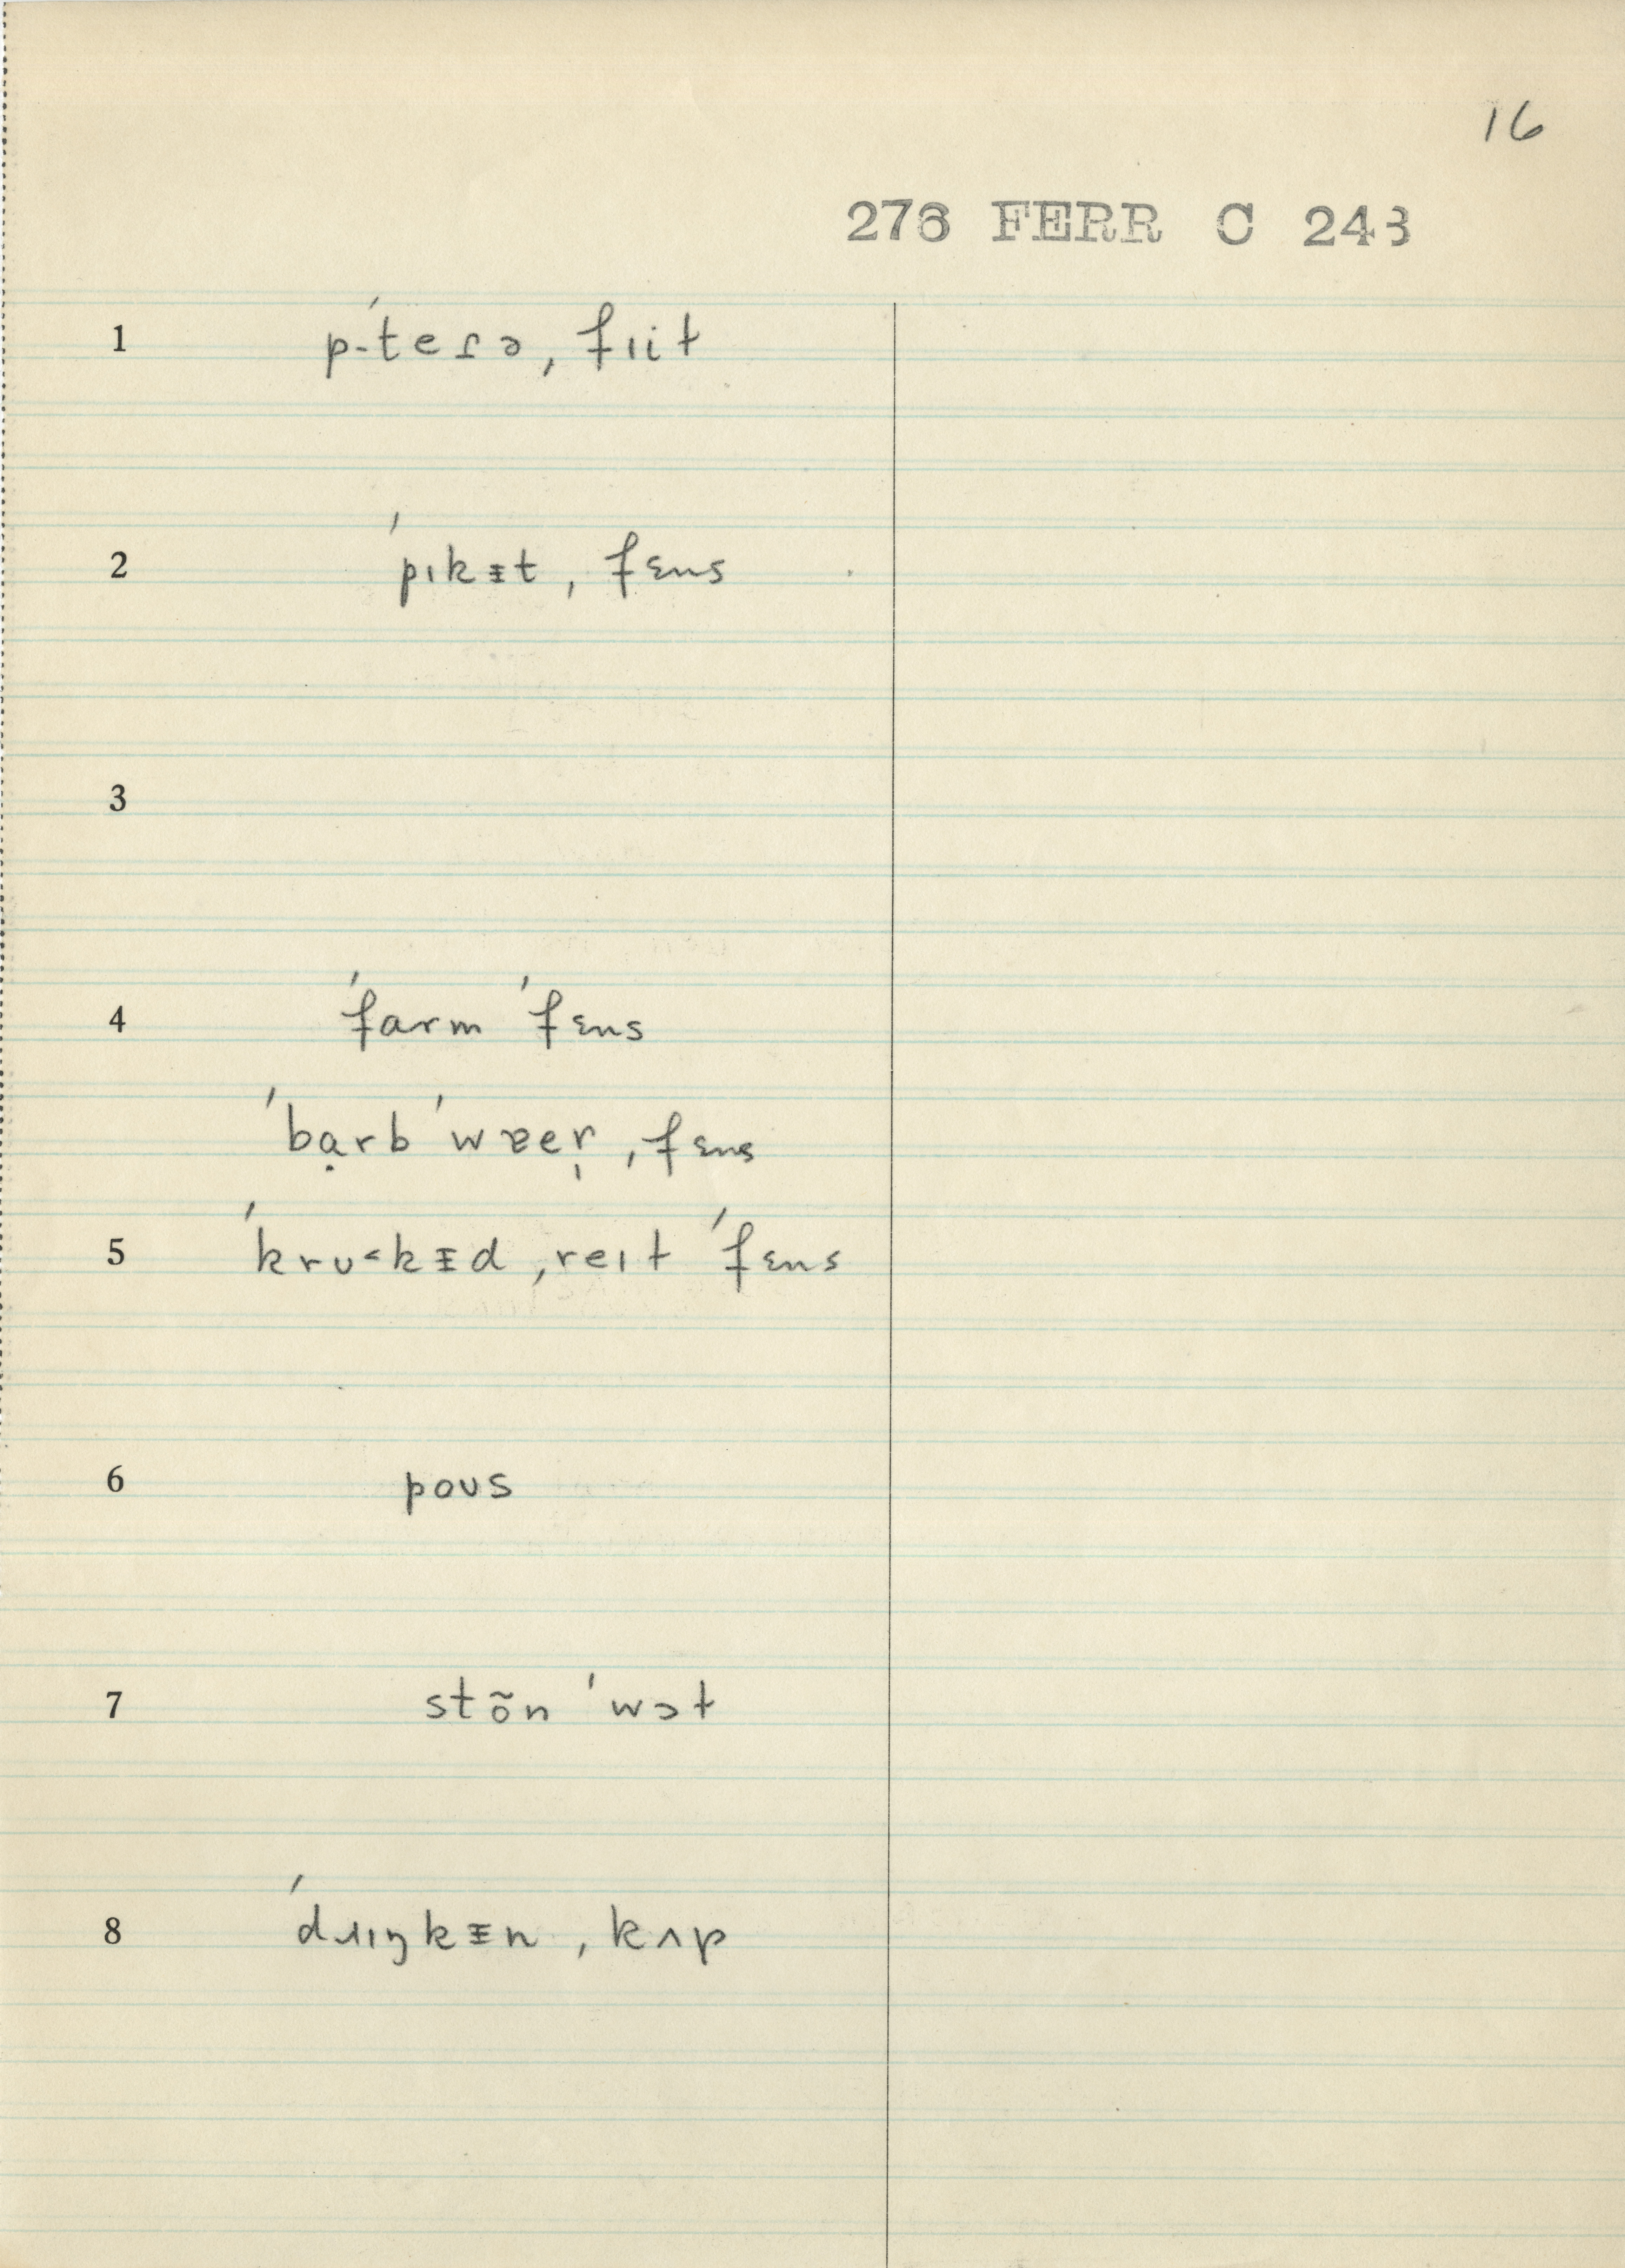 16
276 FERR C 243
1 p-ˈteɾə ˌfiit
2 ˈpɪkᵻt ˌfɛns
3
4 ˈfarm ˈfɛns
ˈbạrb ˈwɐer̩ ˌfɛns
5 ˈkrʊ˂kᵻd ˌreɪt ˈfɛns
6 poʊs
7 stõn ˈwɔt
8 ˈdɹɪŋkᵻn ˌkʌp